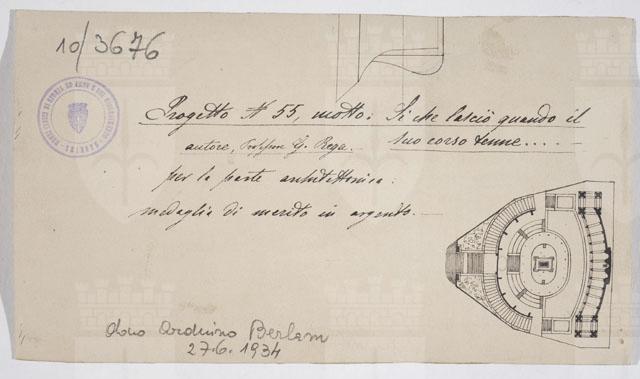 10/3676
Progetto N 55, motto: Sì che lasciò quando il
autore, Professor G. Rega. suo corso tenne.....
per la parte architettonica.
medaglia di merito in argento.
dono Arduino Berlam
27.6.1934